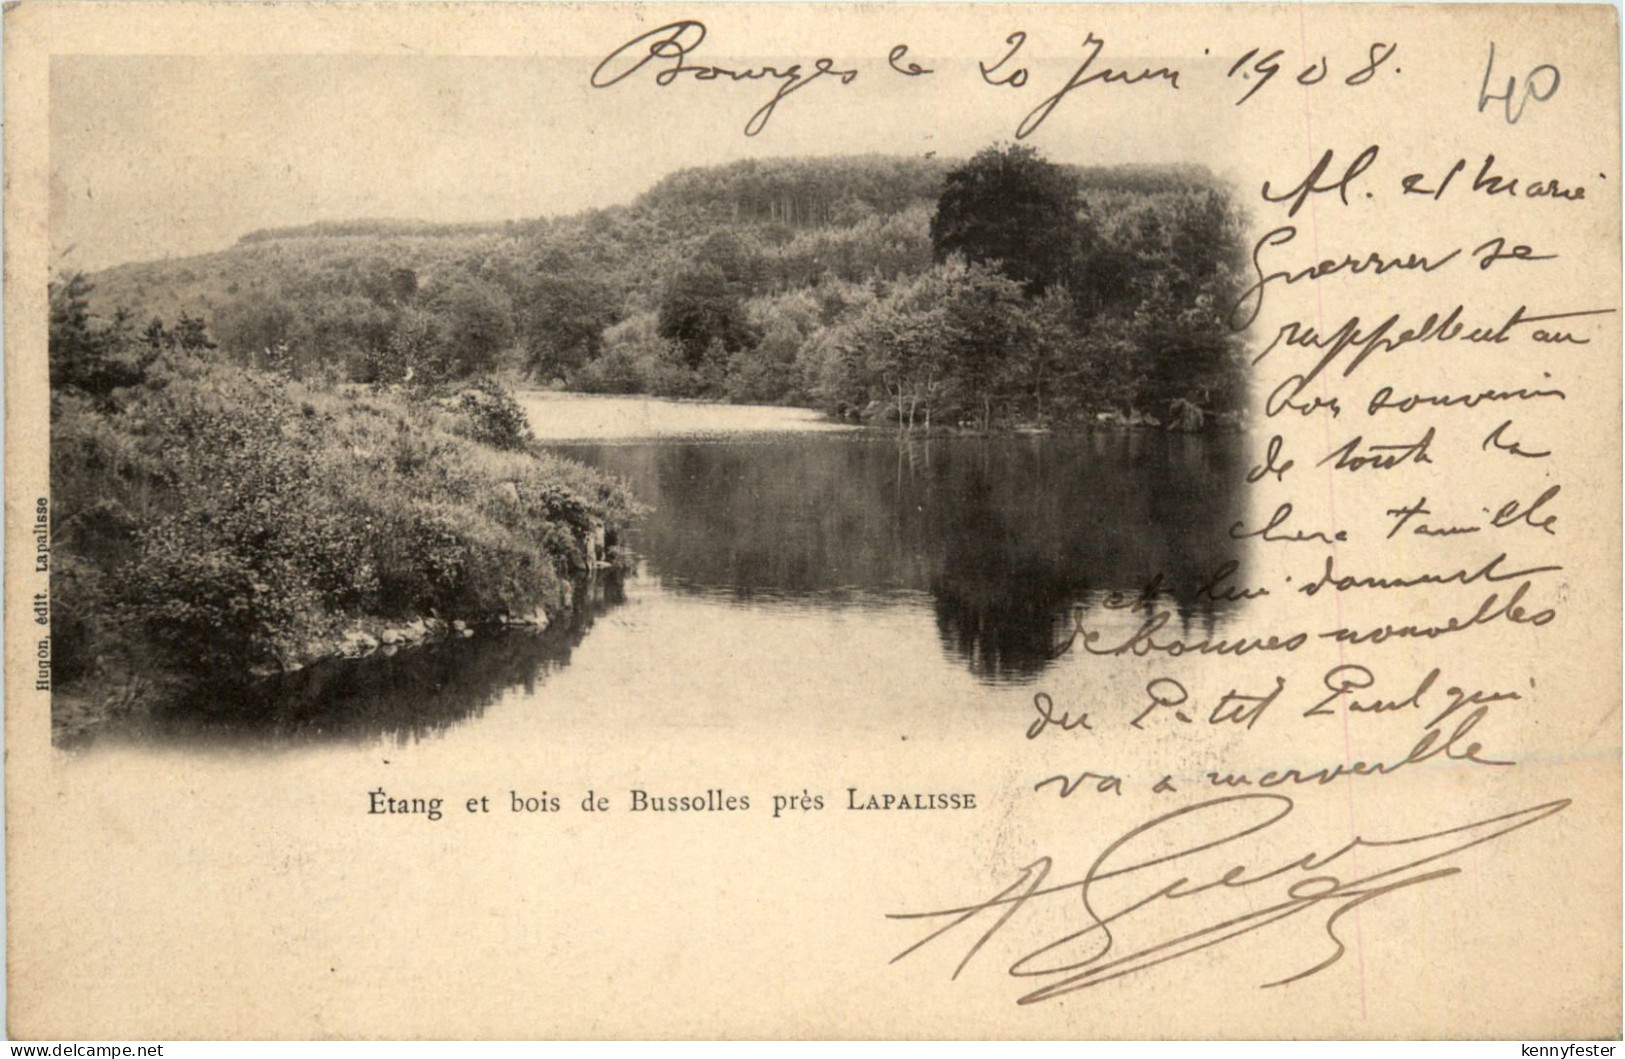 Bourges le 20 Juin 1908.
40
M. et Marie
Guerrier se
rappellent au
bon souvenir
de toute la
chere famille
et lui donnent
de bonnes nouvelles
du Petit Paul qui
va a merveille
Hugon, édit. Lapalisse
Étang et bois de Bussolles près LAPALISSE
delcampe.net
kennyfester